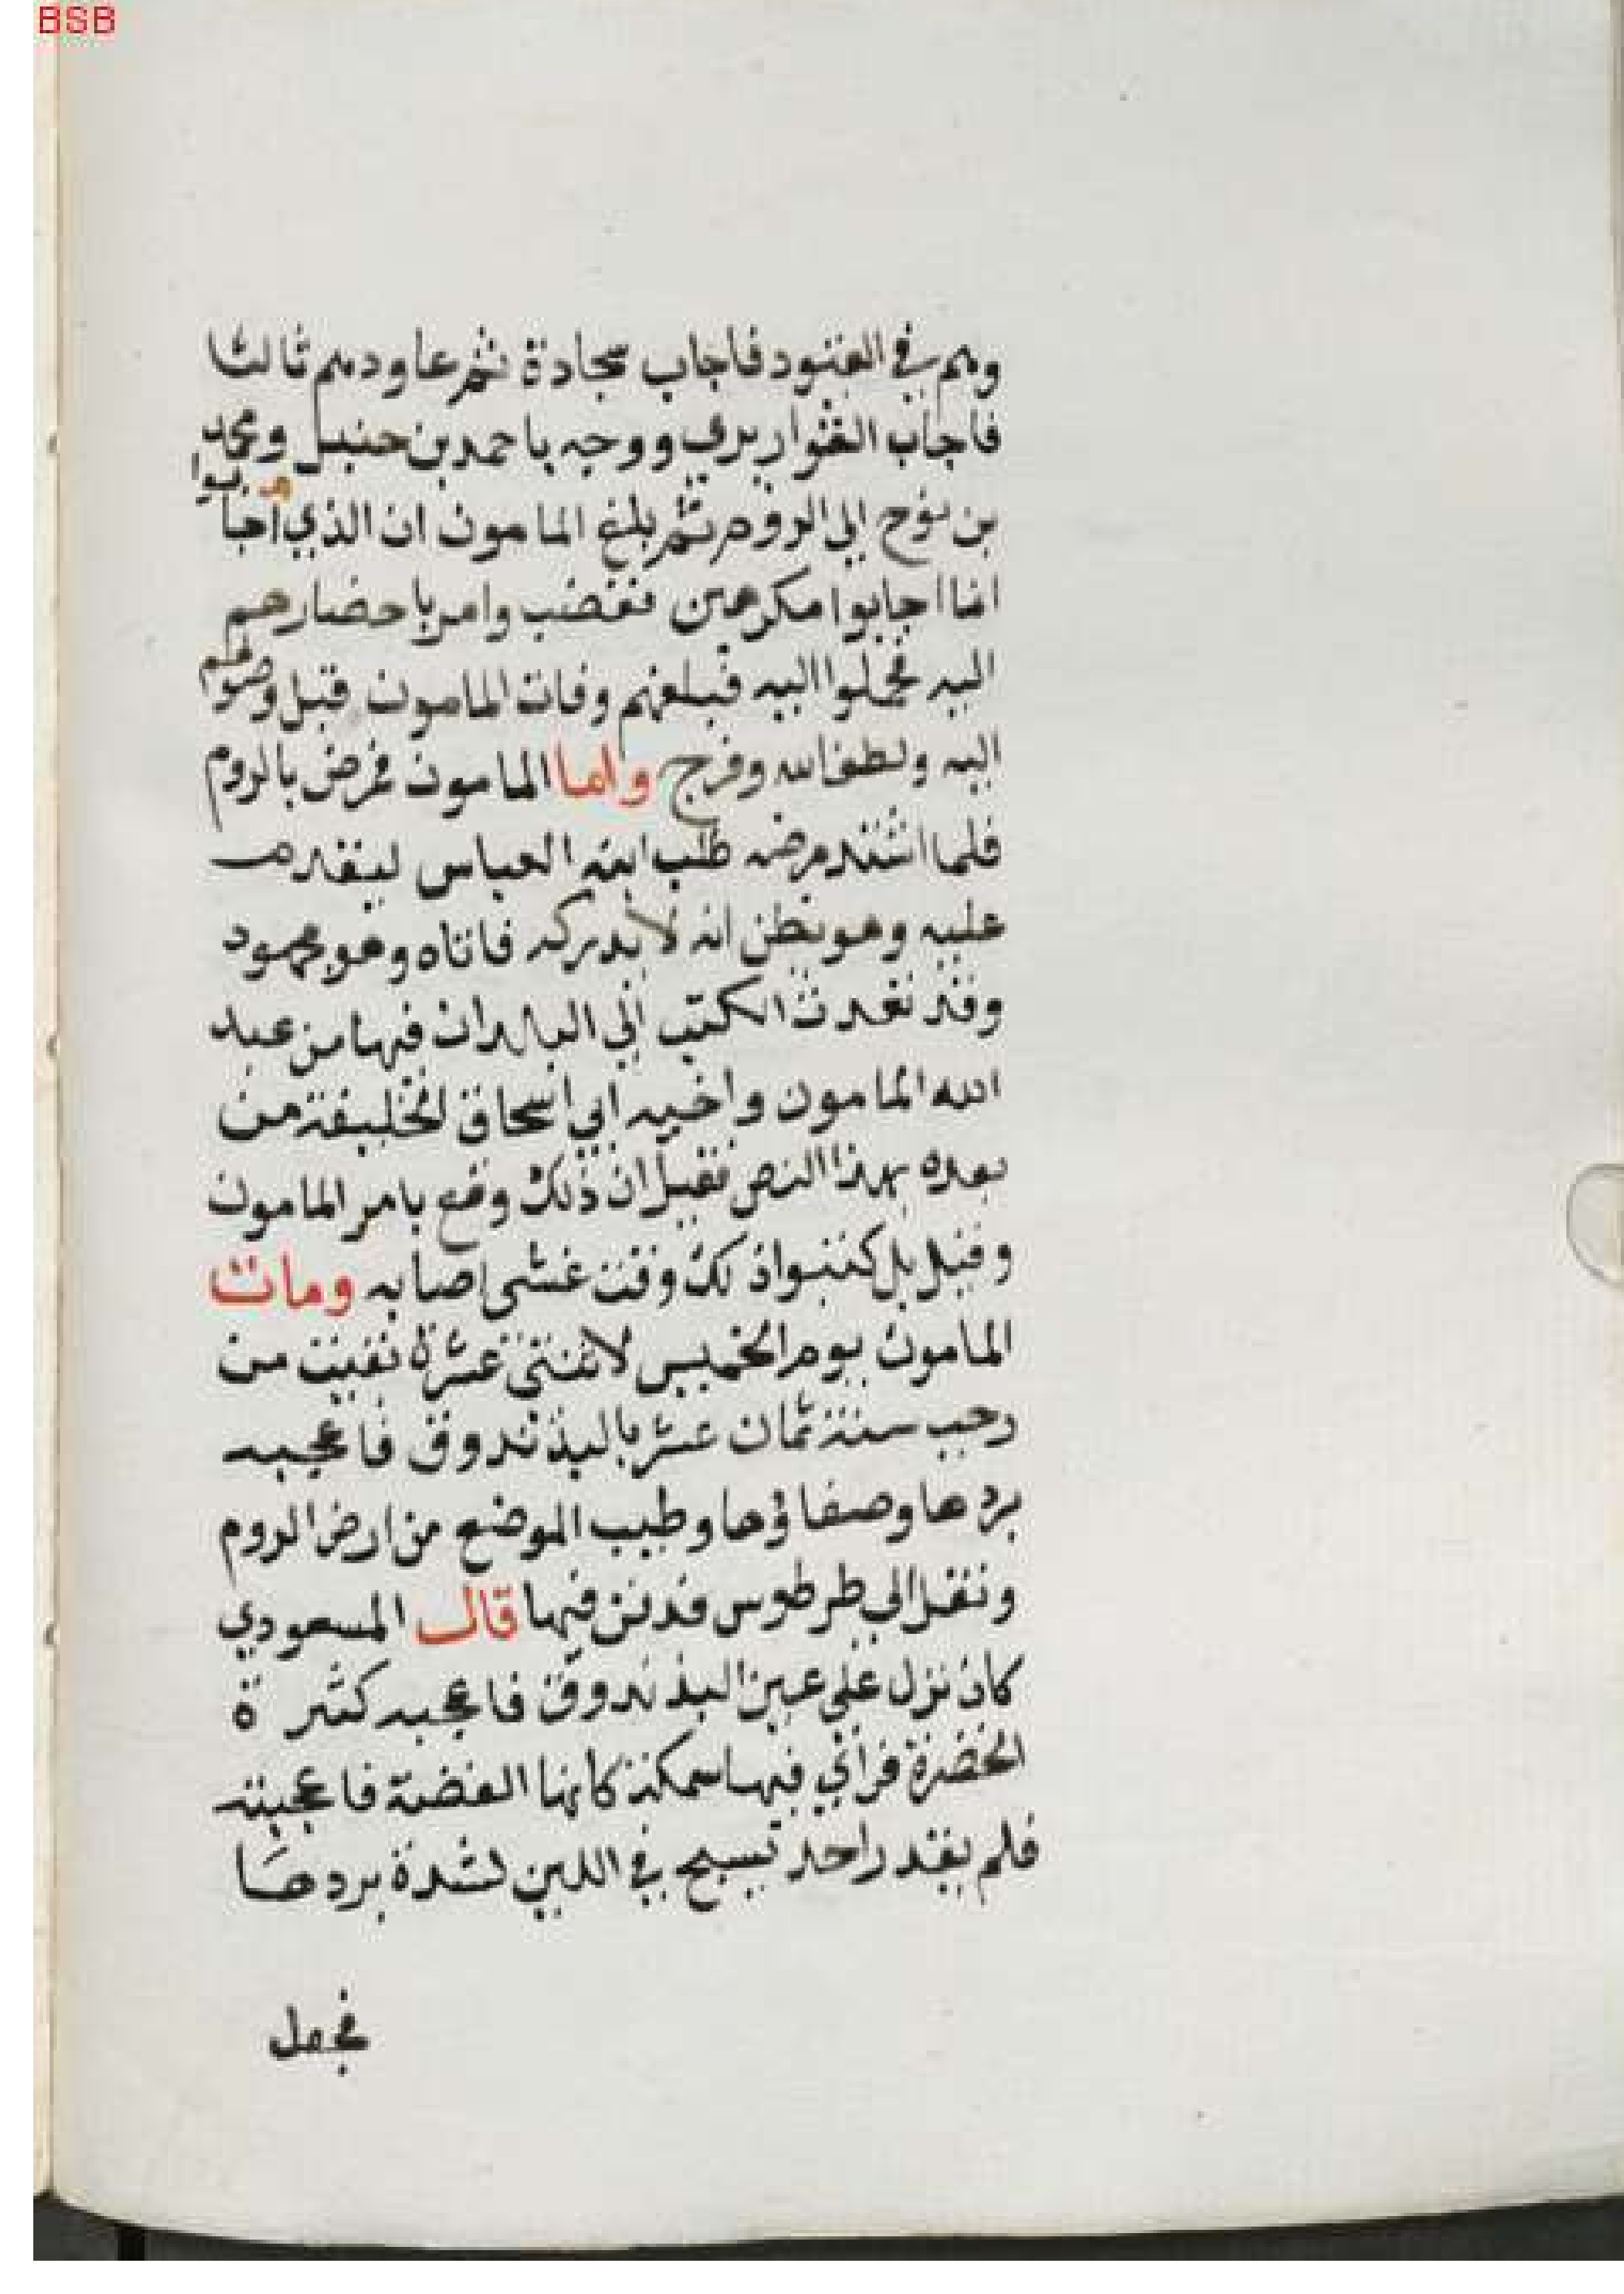 BSB
وهم في القيود فاجاب سجادة ثم عاودهم ثالثا
فاجاب القواريري ووجه باحمد بن حنبل ومحمد
بن نوح الي الروم ثم بلغ المامون ان الذي أجابوا
انما اجابوا مكرهين فغضب وامر باحضارهم
اليه فحملوا اليه فبلغهم وفات المامون قبل وصولهم
اليه ولطف الله وفرج واما المامون فمرض بالروم
فلما اشتد مرضه طلب ابنه العباس ليقدم
عليه وهو يظن انه لا يدركه فاتاه وهو مجهود
وقد نفدت الكتب الي البلدان فيها من عبد
الله المامون واخيه ابي اسحاق الخليفة من
بعده بهذا النص فقيل ان ذلك وقع بامر المامون
وقيل بل كتبوا ذلك وقت غشى اصابه ومات
المامون يوم الخميس لاثنتي عشرة بقيت من
رجب سنة ثمان عشر بالبذندوق فاعجبه
بردها وصفاؤها وطيب الموضع من ارض الروم
ونقل الي طرطوس فدفن فيها قال المسعودي
كان نزل علي عين البذندوق فاعجبه كثرة
الخضرة فرأي فيها سمكة كانها الفضة فاعجبته
فلم يقدر احد تسبح في العين لشدة بردها
فجعل